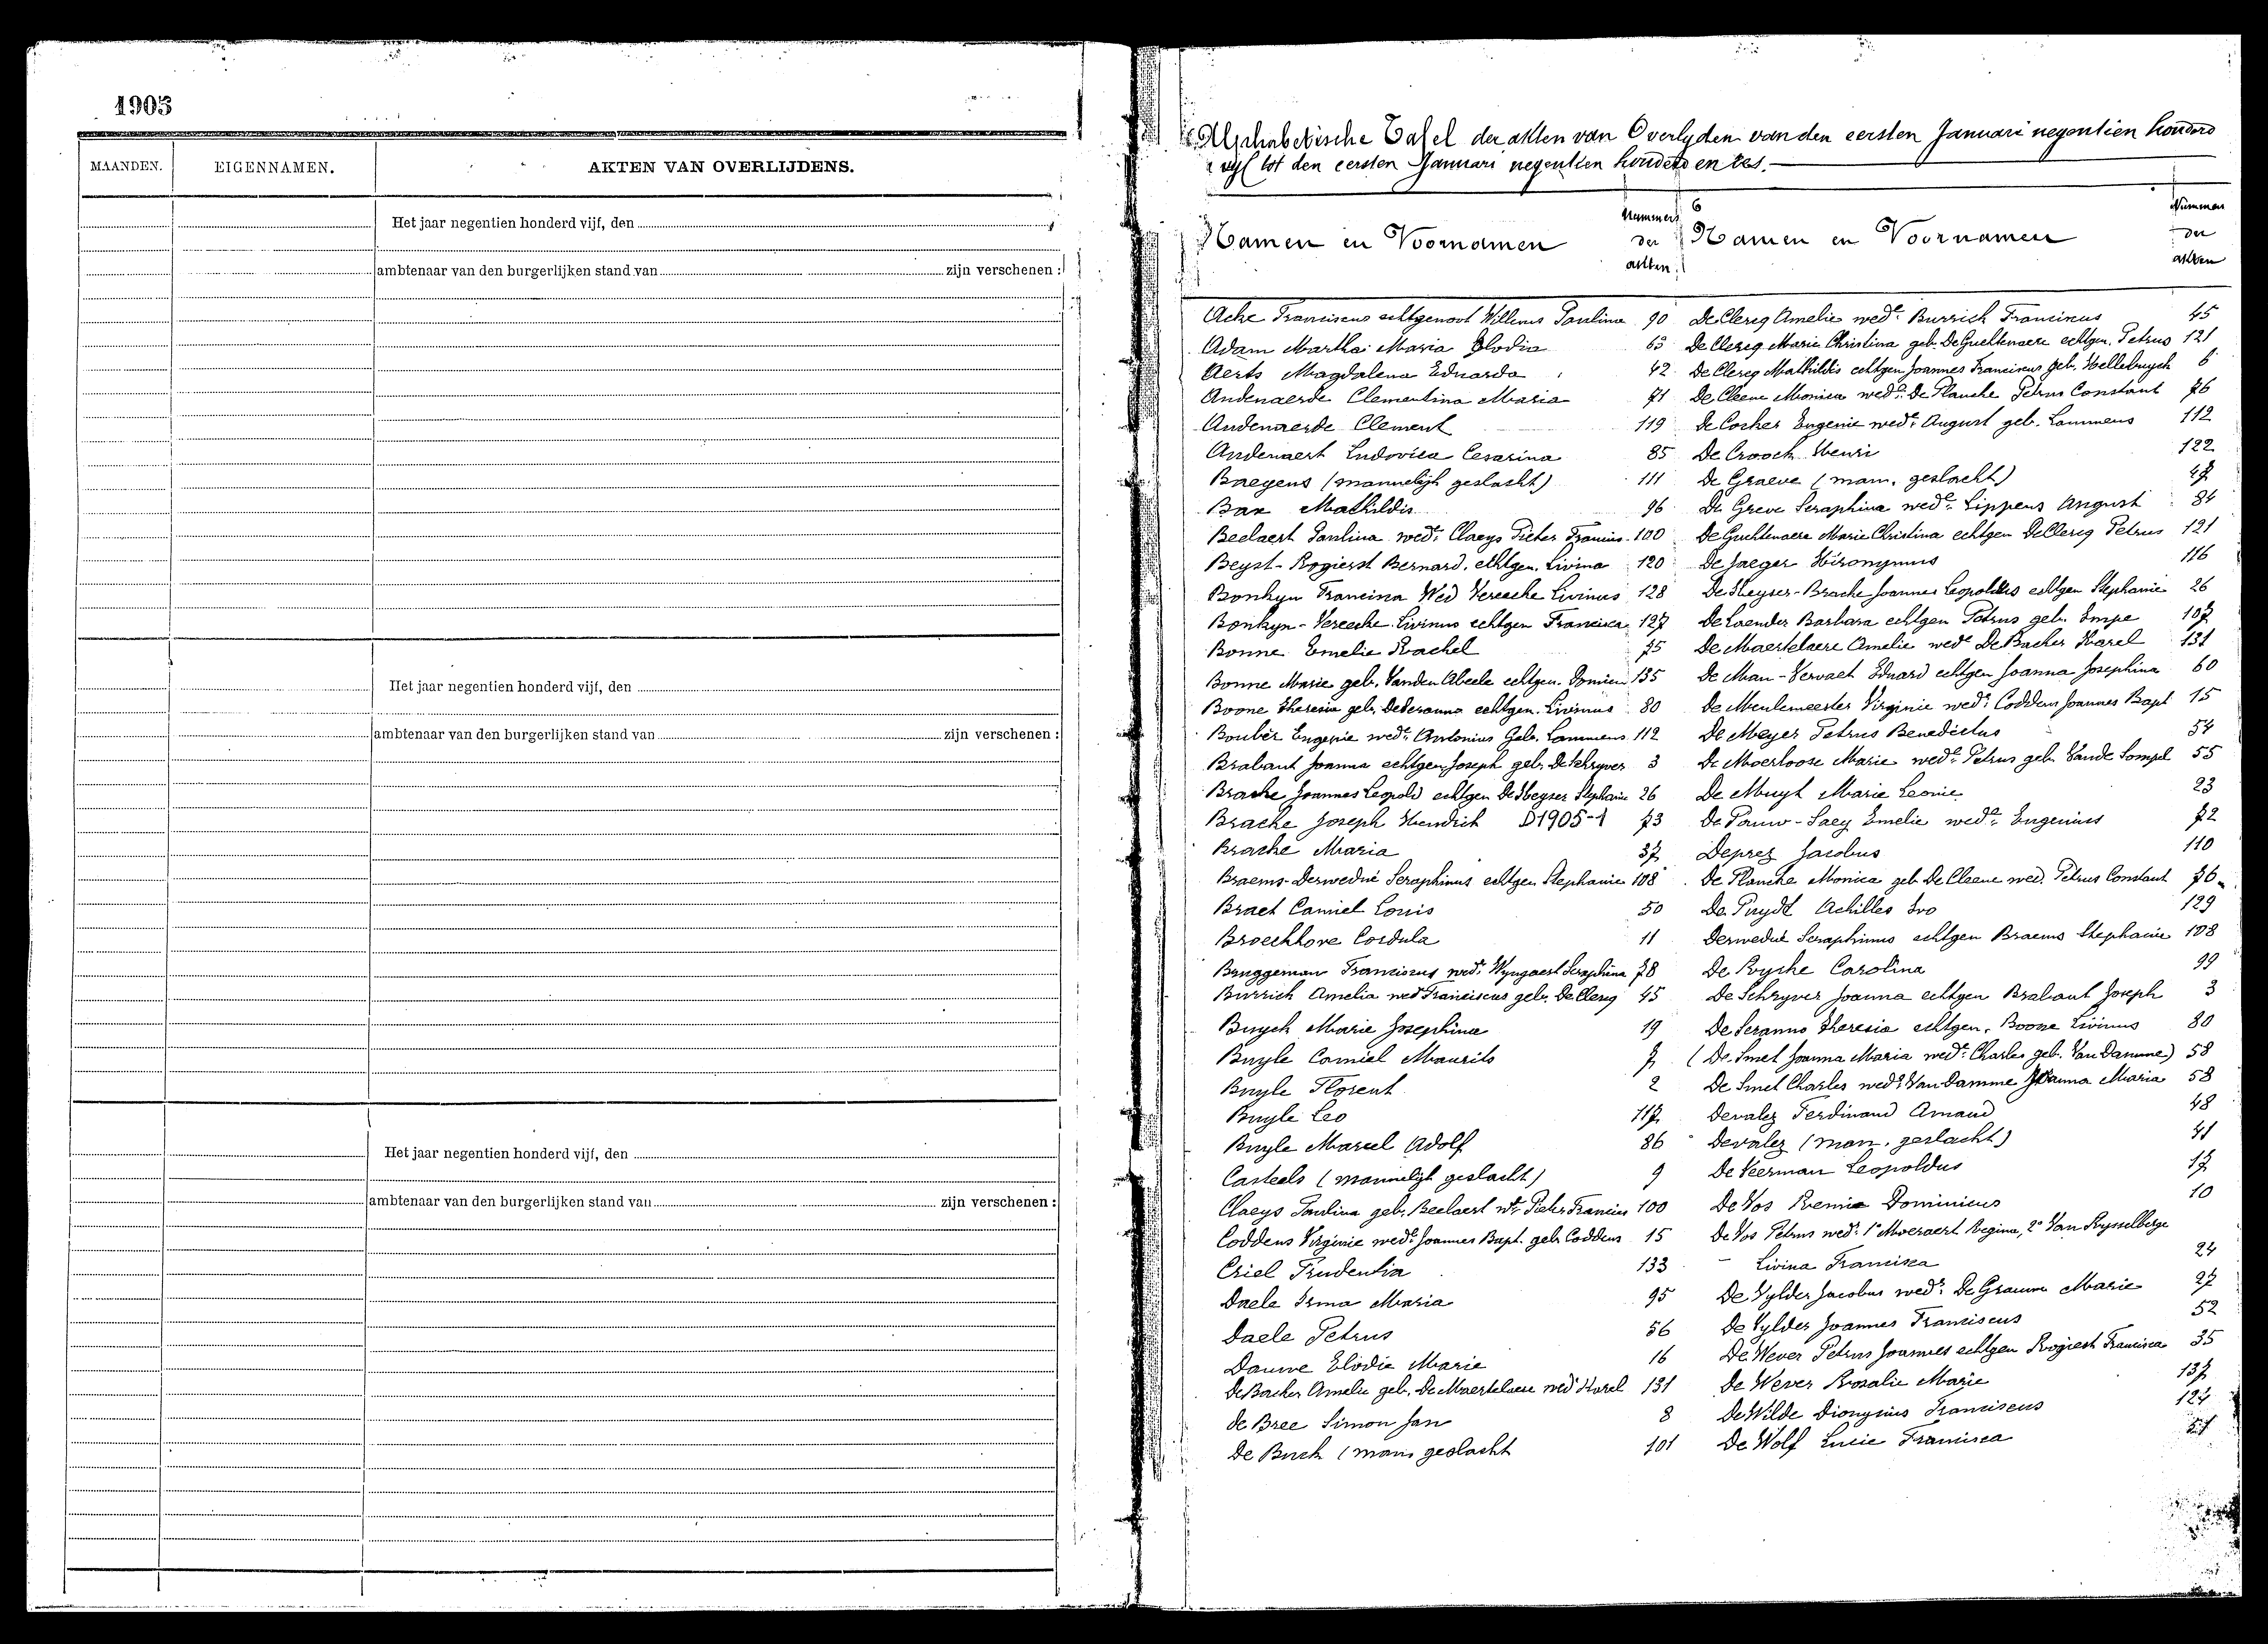 1905
MAANDEN. EIGENNAMEN. AKTEN VAN OVERLIJDENS.
Het jaar negentien honderd vijf, den
ambtenaar van den burgerlijken stand van zijn verschenen :
Het jaar negentien honderd vijf, den
ambtenaar van den burgerlijken stand van zijn verschenen :
Het jaar negentien honderd vijf, den
ambtenaar van den burgerlijken stand van zijn verschenen :
Alphabetische Tafel der akten van Overlyden van den eersten Januari negentien honderd
vyf tot den eersten Januari negentien honderd en zes.
Namen en Voornamen
Nummers der akten
Namen en Voornamen
Nummers der akten
Ache Franciscus echtgenoot Willems Paulina 90
Adam Martha Maria Elodia 63
Aerts Magdalena Eduarda 42
Andenaerde Clementina Maria 71
Andenaerde Clement 119
Andenaert Ludovica Cesarina 85
Baegens (mannelijk geslacht) 111
Bax Mathildis 96
Beelaert Paulina wede Claeys Pieter Francius 100
Beyst-Rogierst Bernard. echtgen. Livina 120
Bonkyn Francisca Wed Vereecke Livinus 128
Bonkyn-Vereecke Livinus echtgen Francisca 127
Bonne Emelie Rachel 75
Bonne Marie geb. Vanden Abeele echtgen. Domien 135
Boone Theresia geb. De Seranno echtgen. Livinus 80
Boubér Eugenie wede Antonius Geb. Lammens 112
Brabant Joanna echtgen. Joseph geb. De Schryver 3
Bracke Joannes Leopold echtgen De Keyser Stephanie 26
Bracke Joseph Hendrik D1905-1 73
Bracke Maria 37
Braems-Derwedué Seraphinus echtgen Stephanie 108
Braet Camiel Louis 50
Broeckhove Cordula 11
Bruggeman Franciscus wedr Wyngaert Seraphina 78
Burrick Amelia wed Franciscus geb. De Clercq 45
Buyck Marie Josephine 19
Buyle Camiel Maurits 7
Buyle Florent 2
Buyle Leo 117
Buyle Marcel Adolf 86
Casteels (mannelijk geslacht) 9
Claeys Paulina geb. Beelaert we Pieter Francius 100
Coddens Virginie wede Joannes Bapt. geb. Coddens 15
Criel Prudentia 133
Daele Irma Maria 95
Daele Petrus 56
Dauwe Elodie Marie 16
De Backer Amelie geb. De Maertelaere wed Karel 131
De Bree Simon Jan 8
De Buck (man. geslacht 101
De Clercq Amelie wede Burrick Francinus 45
De Clercq Marie Christina geb. De Guchtenaere echtgen. Petrus 121
De Clercq Mathildis echtgen Joannes Franciscus geb. Hellebuyck 6
De Cleene Monica wede De Plancke Petrus Constant 76
De Cocker Eugenie wede August geb. Lammens 112
De Croock Henri 122
De Graeve (man. geslacht) 47
De Greve Seraphina wede Lippens August 84
De Guchtenaere Marie Christina echtgen De Clercq Petrus 121
De Jaeger Hiëronymus 116
De Keyser-Bracke Joannes Leopoldus echtgen Stephanie 26
De Laender Barbara echtgen Petrus geb. Impe 107
De Maertelaere Amelie wede De Backer Karel 131
De Man-Vervaet Eduard echtgen Joanna Josephina 60
De Meulemeester Virginie wede Coddens Joannes Bapt 15
De Meyer Petrus Benedictus 54
De Moerloose Marie wede Petrus geb. Vande Sompel 55
De Muyt Marie Leonie 23
De Pauw-Saey Emelie wede Eugenius 72
Deprez Jacobus 110
De Plancke Monica geb De Cleene wed. Petrus Constant 76
De Pruydt Achilles Ivo 129
Derwedué Seraphinus echtgen Braems Stephanie 108
De Rycke Carolina 99
De Schryver Joanna echtgen Brabant Joseph 3
De Seranno Theresia echtgen. Boone Livinus 80
(De Smet Joanna Maria wede Charles geb. Van Damme) 58
De Smet Charles wedr Van Damme Joanna Maria 58
Devalez Ferdinand Amand 48
Devalez (man. geslacht) 41
De Veerman Leopoldus 17
De Vos Remie Dominicus 10
De Vos Petrus wedr 1° Moeraert Regina, 2° Van Rysselberge
Livina Francisca 24
De Vylder Jacobus wedr De Grauwe Marie 27
De Vylder Joannes Franciscus 52
De Wever Petrus Joannes echtgen Rogiest Francisca 35
De Wever Rosalie Marie 137
De Wilde Dionysius Franciscus 124
De Wolf Lucie Francisca